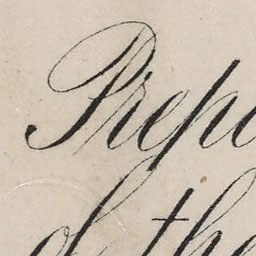 Prepa
of the